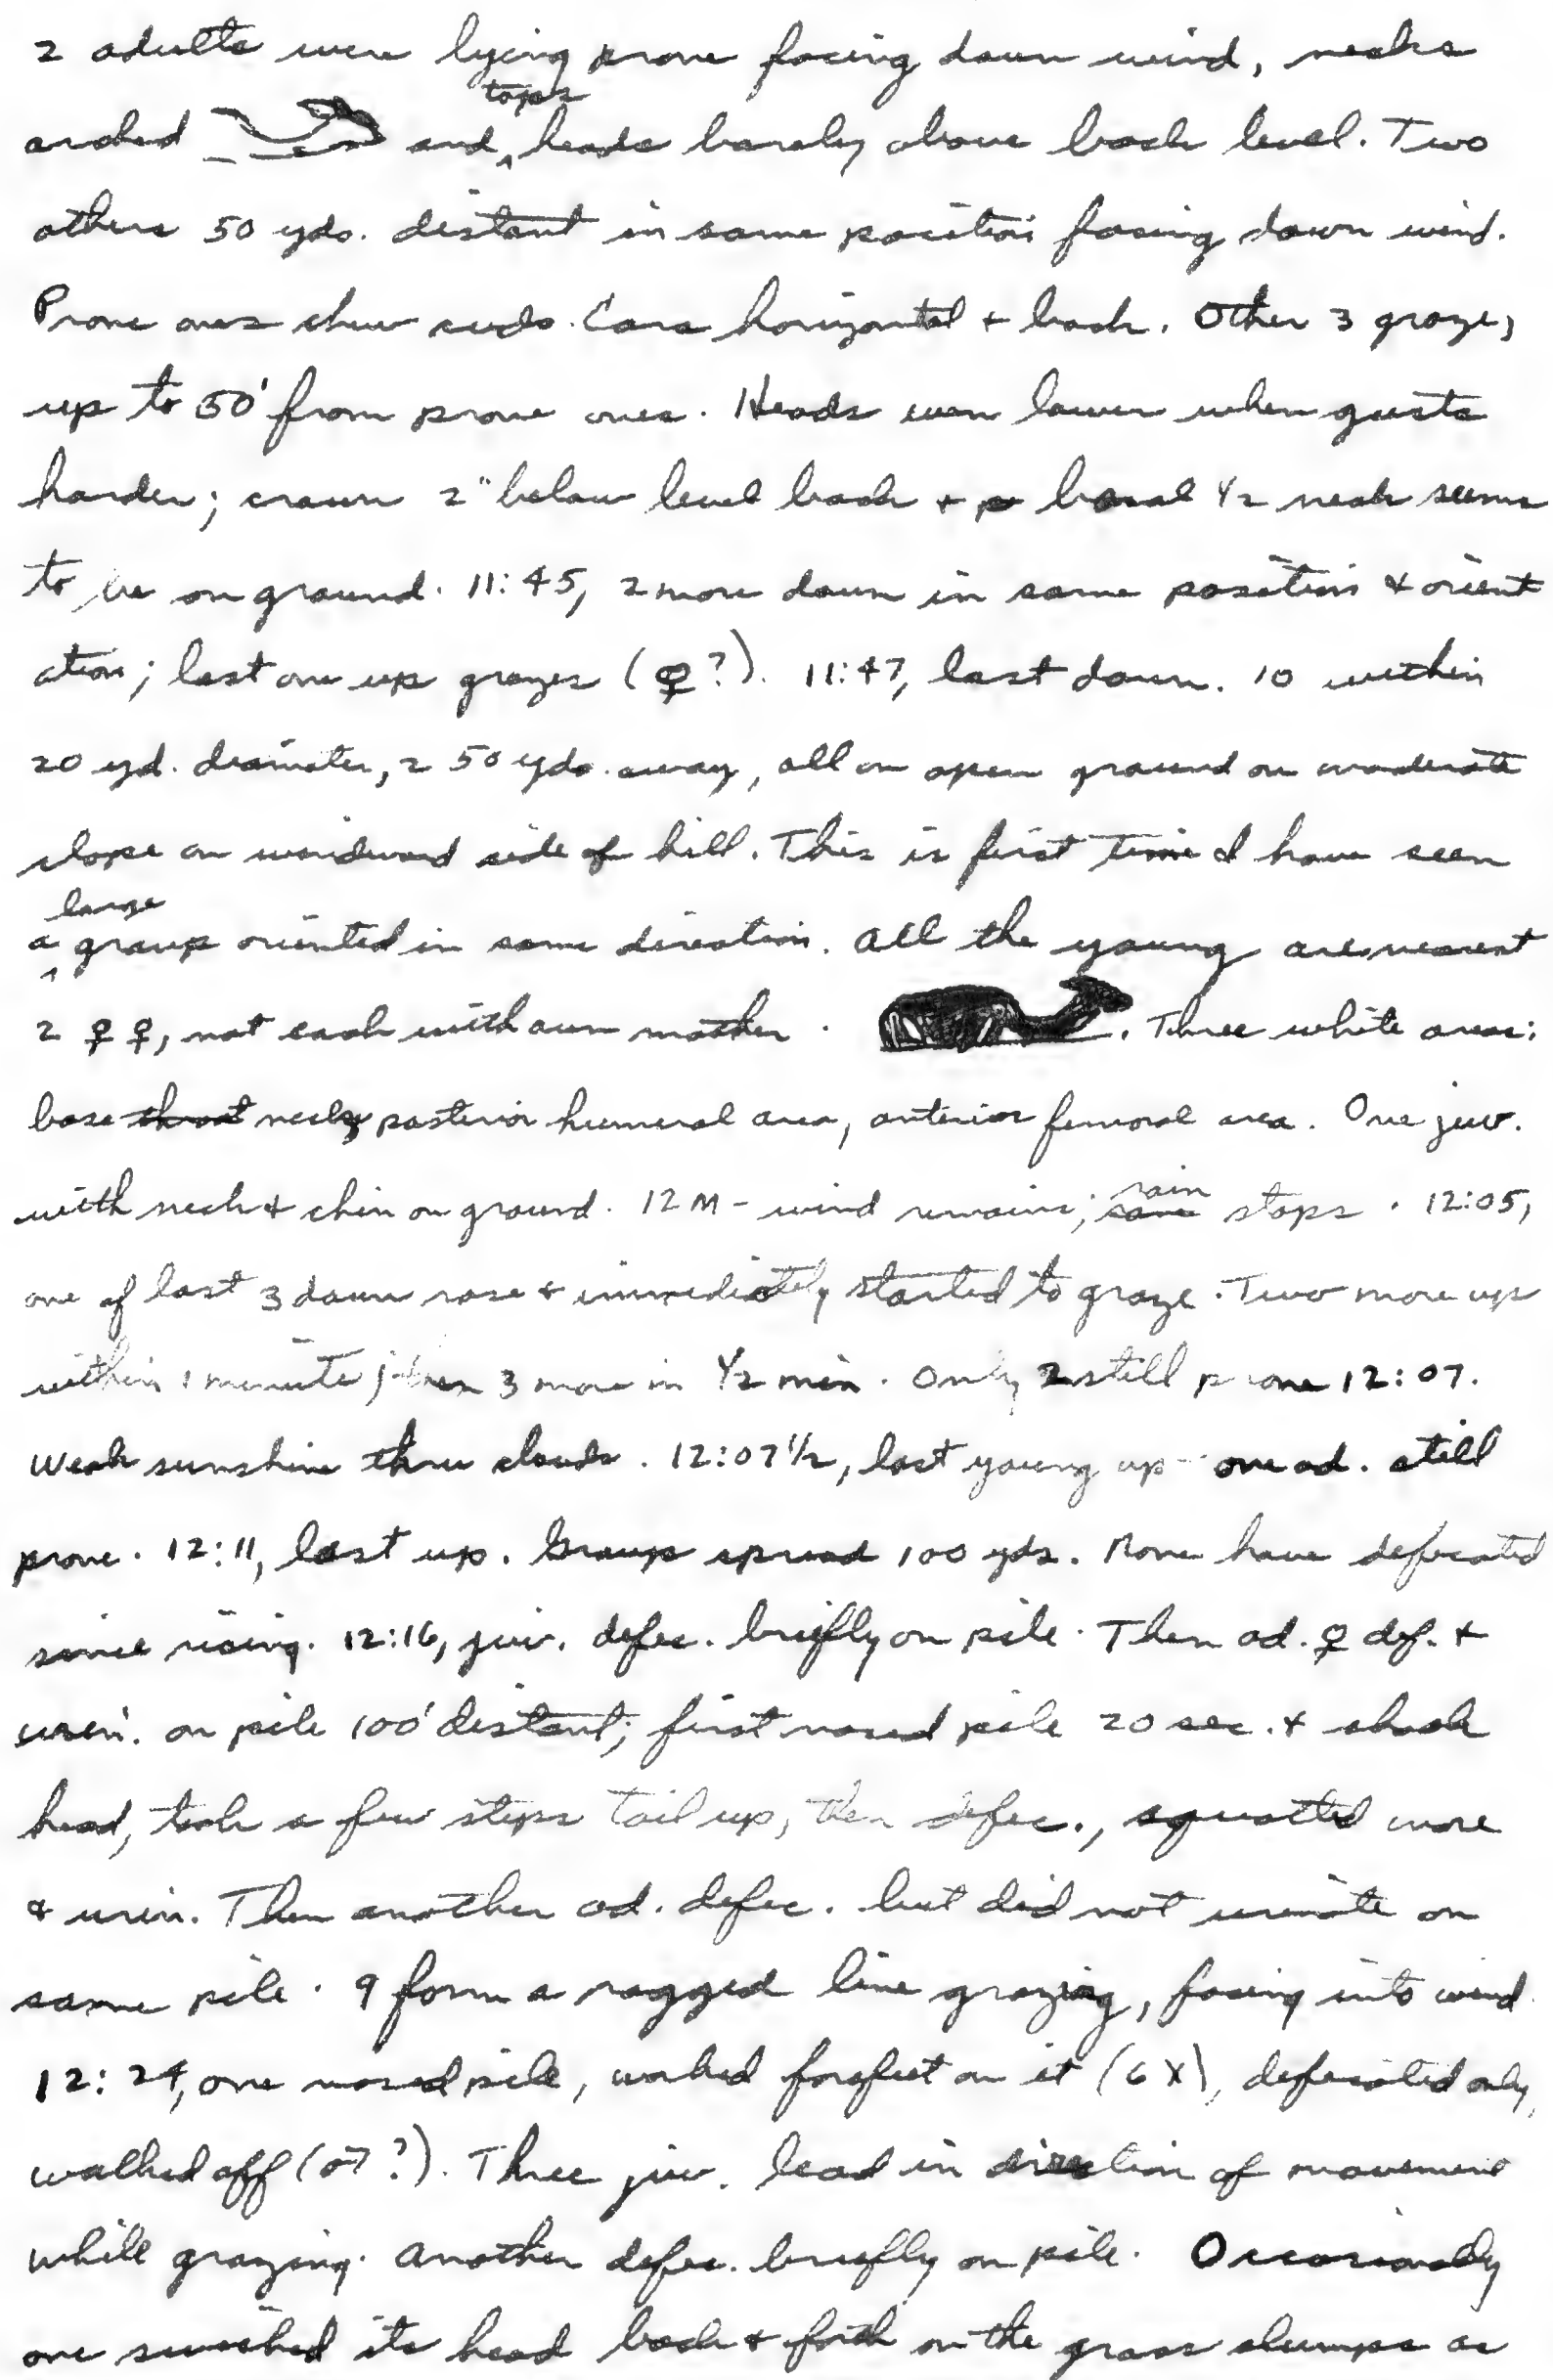 2 adults were lying prone facing down wind, necks
arched and ^tops heads barely above back level. Two
others 50 yds. distant in same position facing down wind.
Prone ones chew cuds. Ears horizontal + back. Other 3 graze,
up to 50' from prone ones. Heads even lower when gusts
harder; crown 2" below level back + basal 1/2 neck seems
to be on ground. 11:45, 2 more down in same position & orient
ation; last one up grazes (♀?). 11:47, last down. 10 within
20 yd. diameter, 2 50 yds. away, all on open ground on moderate
slope on windward side of hill. This is first time I have seen
a ^large group oriented in same direction. All the young are nearest
2 ♀ ♀, not each with own mother. Three white areas:
base throat neck, posterior humeral area, anterior femoral area. One juv.
with neck & chin on ground. 12 M - wind remains; rain stops. 12:05,
one of last 3 down rose & immediately started to graze. Two more up
within 1 minute; then 3 more in 1/2 min. Only 2 still prone 12:07.
Weak sunshine thru clouds. 12:07 1/2, last young up - one ad. still
prone. 12:11, last up. Group spread 100 yds. None have defecated
since rising. 12:16, juv. defec. briefly on pile. Then ad. ♀ def. &
urin. on pile 100' distant; first nosed pile 20 sec. & shook
head, took a few steps tail up, then defec., squatted more
& urin. Then another ad. defec. but did not urinate on
same pile. 9 form a ragged line grazing, facing into wind.
12:24, one nosed pile, worked forefeet on it (6 X), defecated only,
walked off (♂?). Three juv. lead in direction of movement
while grazing. Another defec. briefly on pile. Occasionally
one swished its head back & forth on the grass clumps as